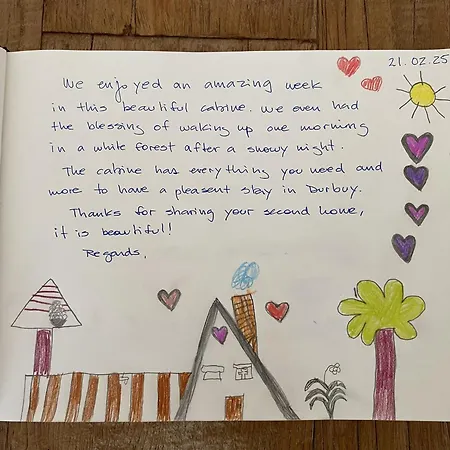 21.02.25
We enjoyed an amazing week
in this beautiful cabine. We even had
the blessing of waking up one morning
in a white forest after a snowy night.
The cabine has everything you need and
more to have a pleasent stay in Durbuy.
Thanks for sharing your second home,
it is beautiful!
Regards,